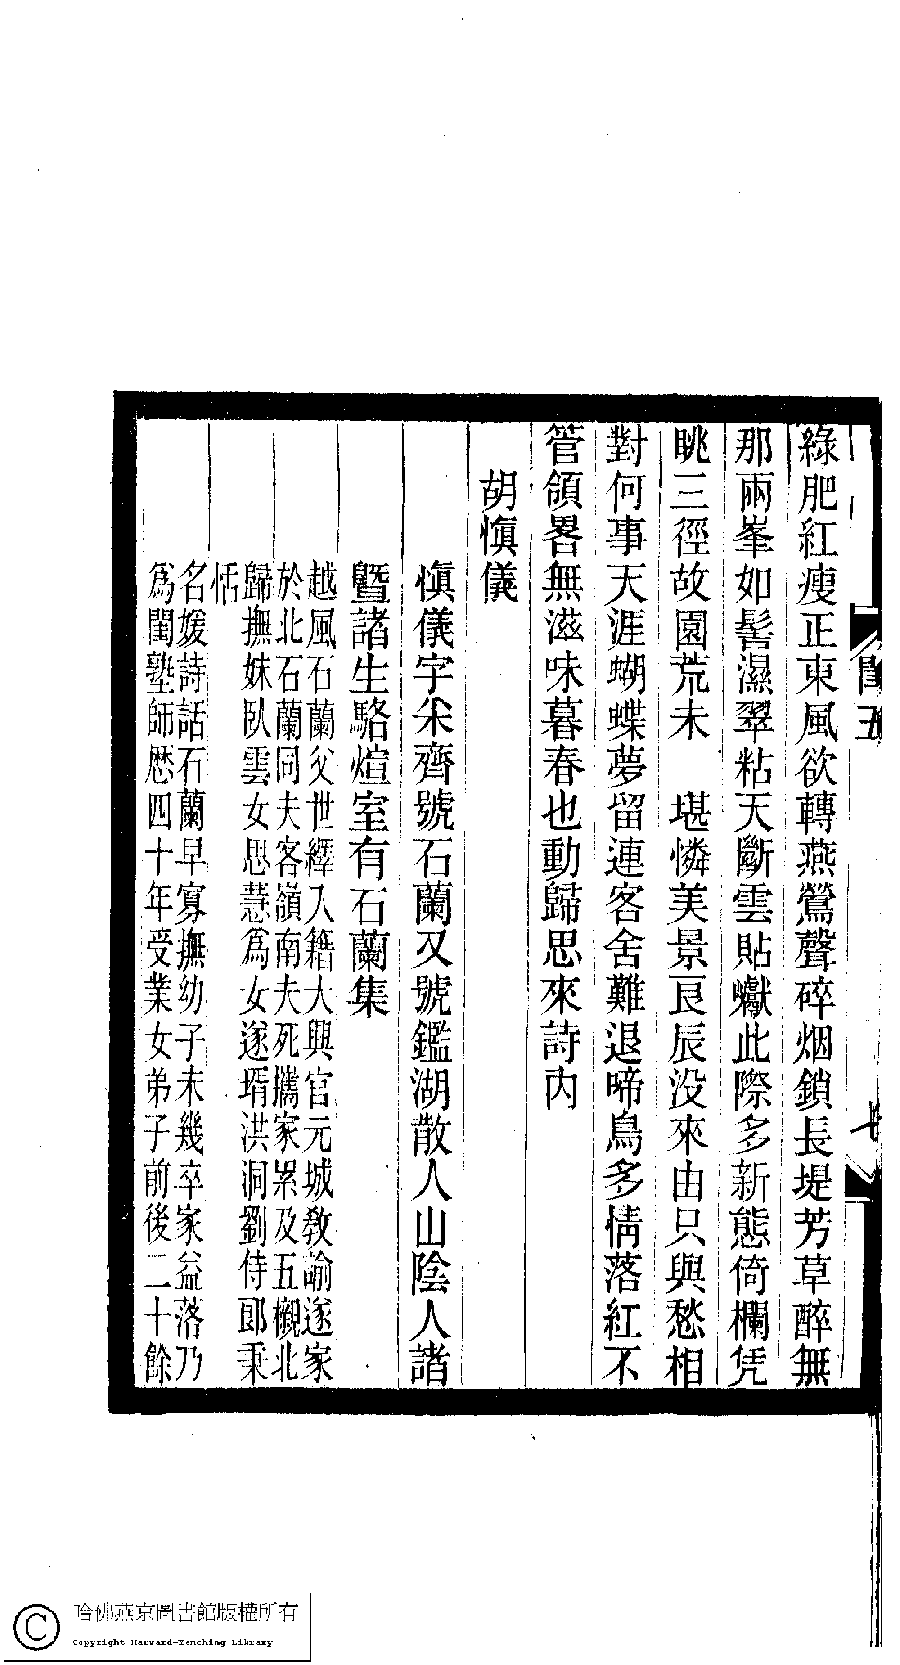 閨五
七
綠肥紅瘦正東風欲轉燕鶯聲碎烟鎖長堤芳草醉無
那兩峯如髻濕翠粘天斷雲貼巘此際多新態倚欄凭
眺三徑故園荒未　堪憐美景良辰没來由只與愁相
對何事天涯蝴蝶夢留連客舍難退啼鳥多情落紅不
管領畧無滋味暮春也動歸思來詩内
胡愼儀
愼儀字采齊號石蘭又號鑑湖散人山陰人諸
曁諸生駱烜室有石蘭集
越風石蘭父世繹入籍大興官元城敎諭遂家
於北石蘭同夫客嶺南夫死攜家累及五櫬北
歸撫妹臥雲女思慧爲女遂壻洪洞劉侍郎秉
恬
名媛詩話石蘭早寡撫幼子未幾卒家益落乃
爲閨塾師歴四十年受業女弟子前後二十餘
哈佛燕京圖書館版權所有
Copyright Harvard-Yenching Library